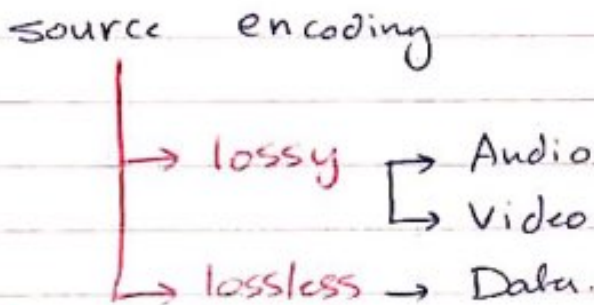 source encoding
→ lossy → Audio
→ Video
→ lossless → Data.